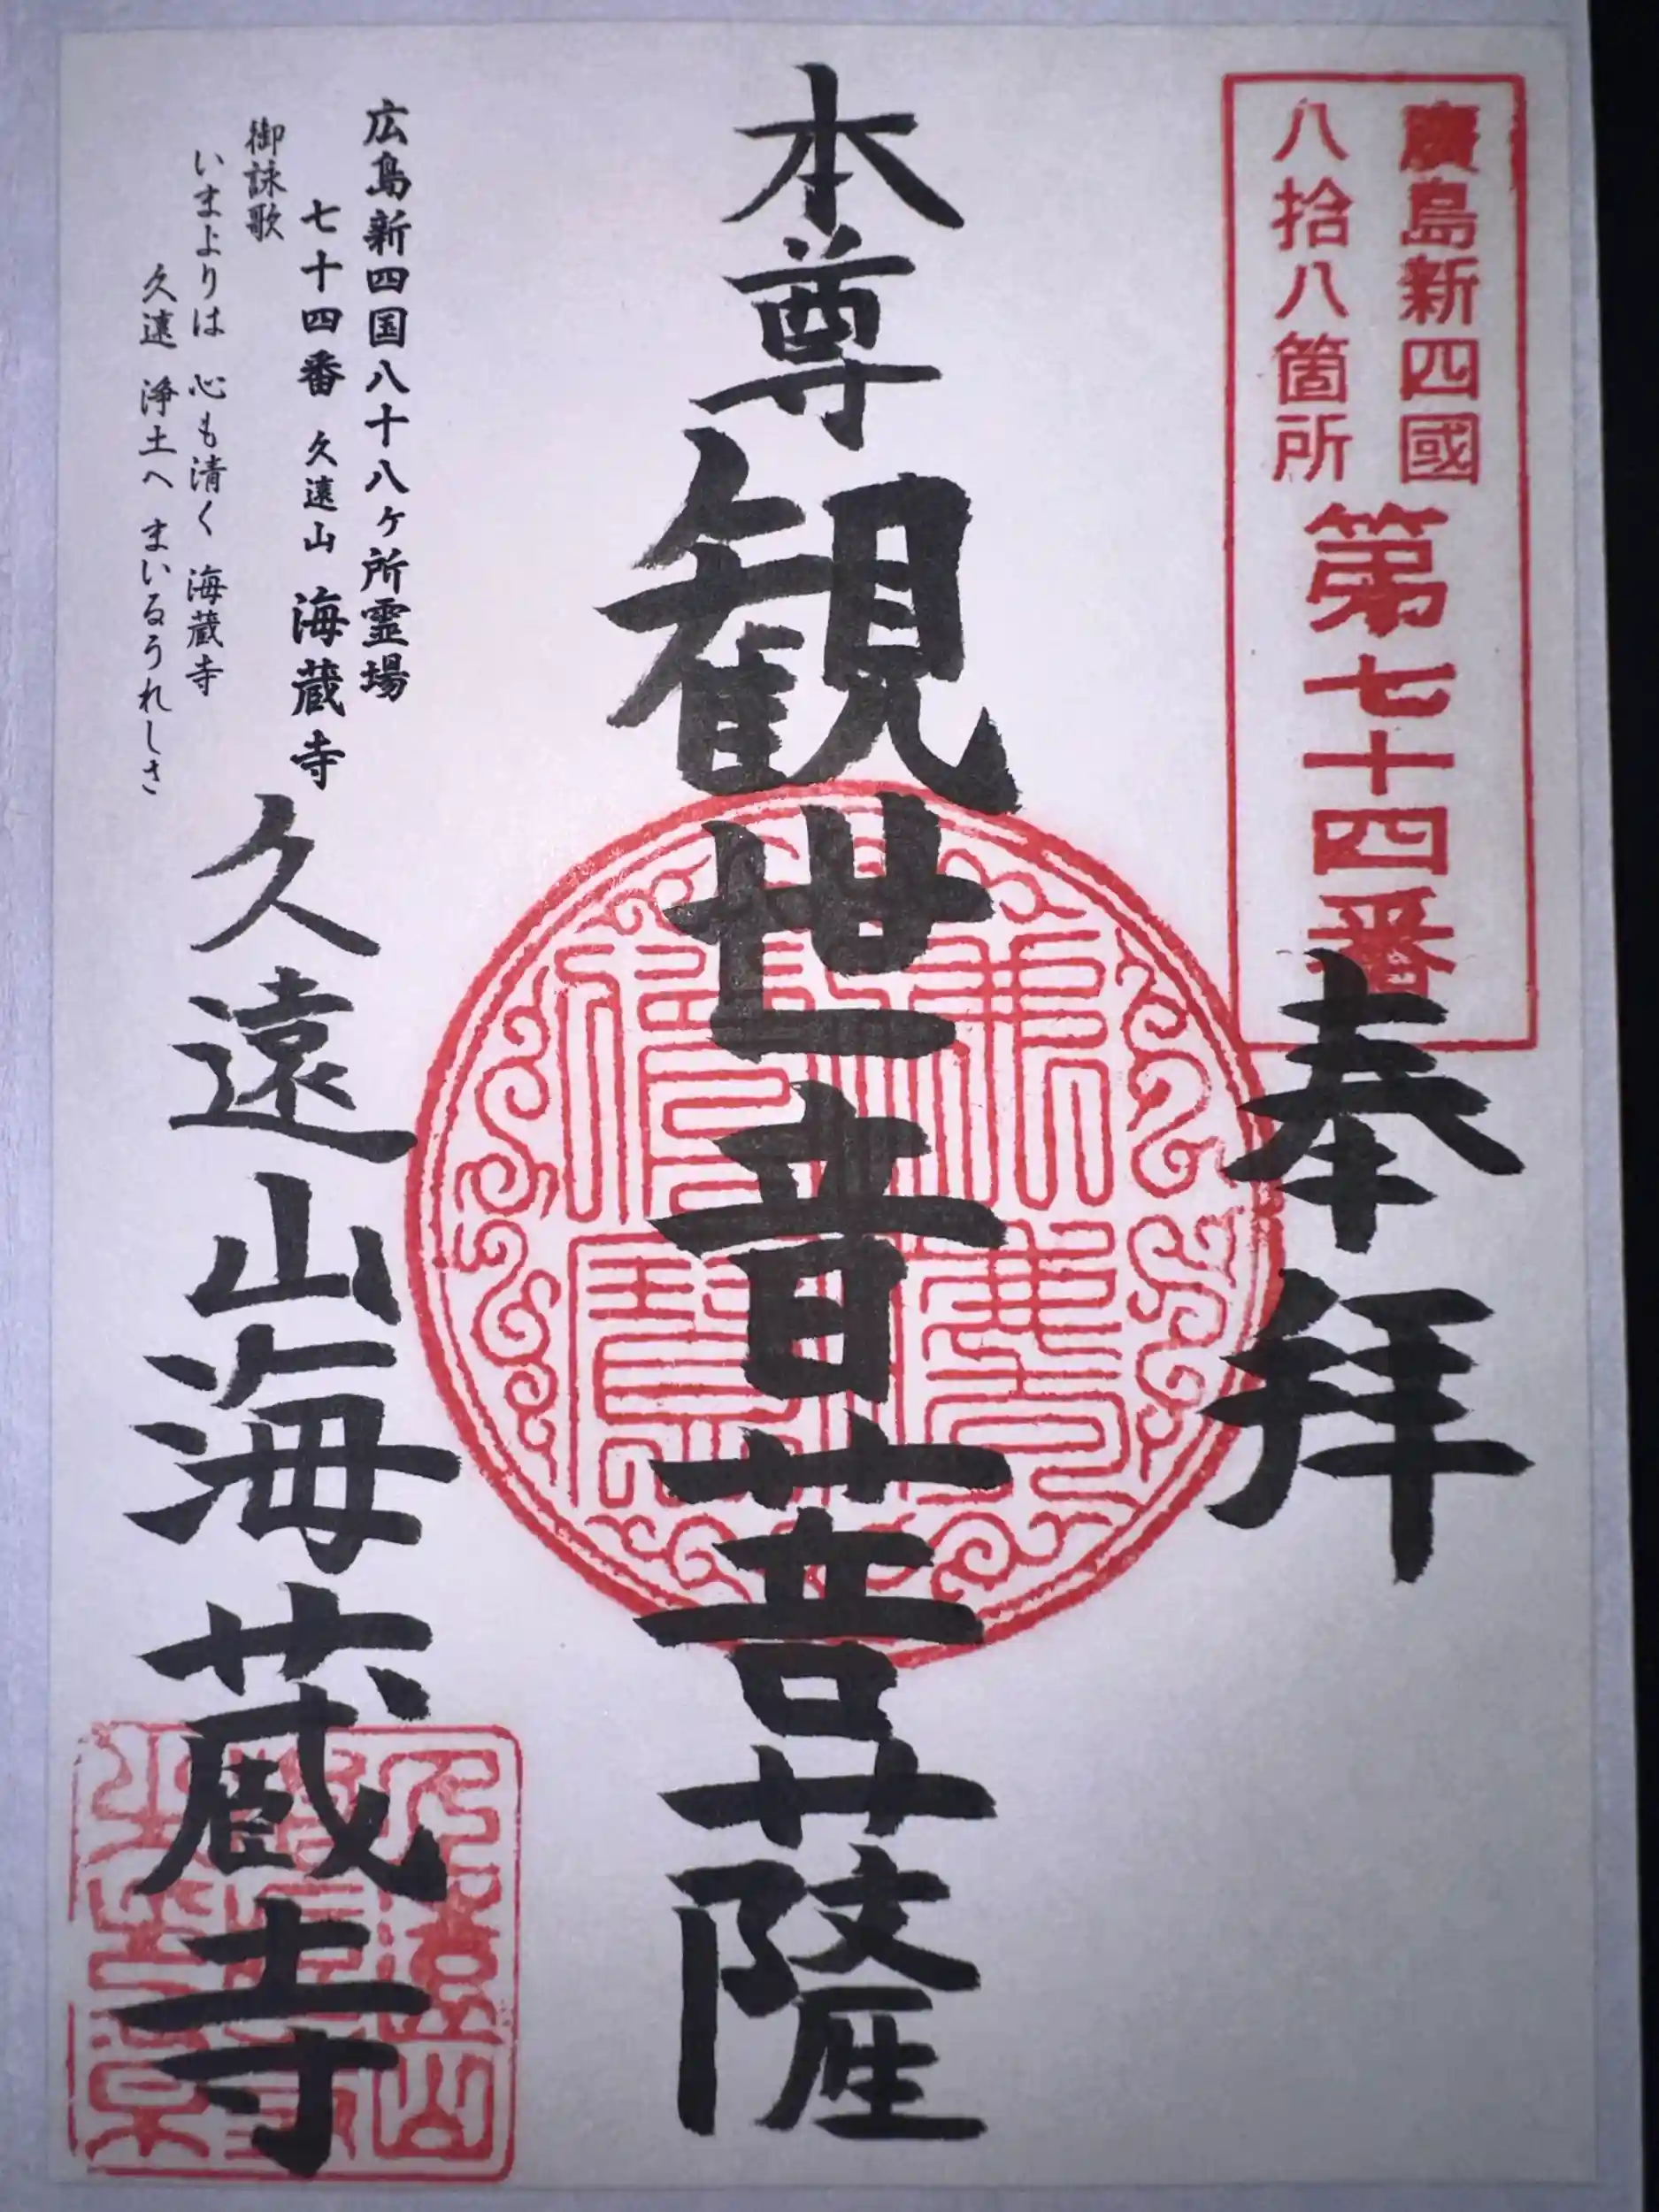 廣島新四國
八拾八箇所
第七十四番
奉拝
本尊観世音菩薩
広島新四国八十八ヶ所霊場
七十四番 久遠山 海蔵寺
御詠歌
いまよりは 心も清く 海蔵寺
久遠 浄土へ まいるうれしさ
久遠山海蔵寺